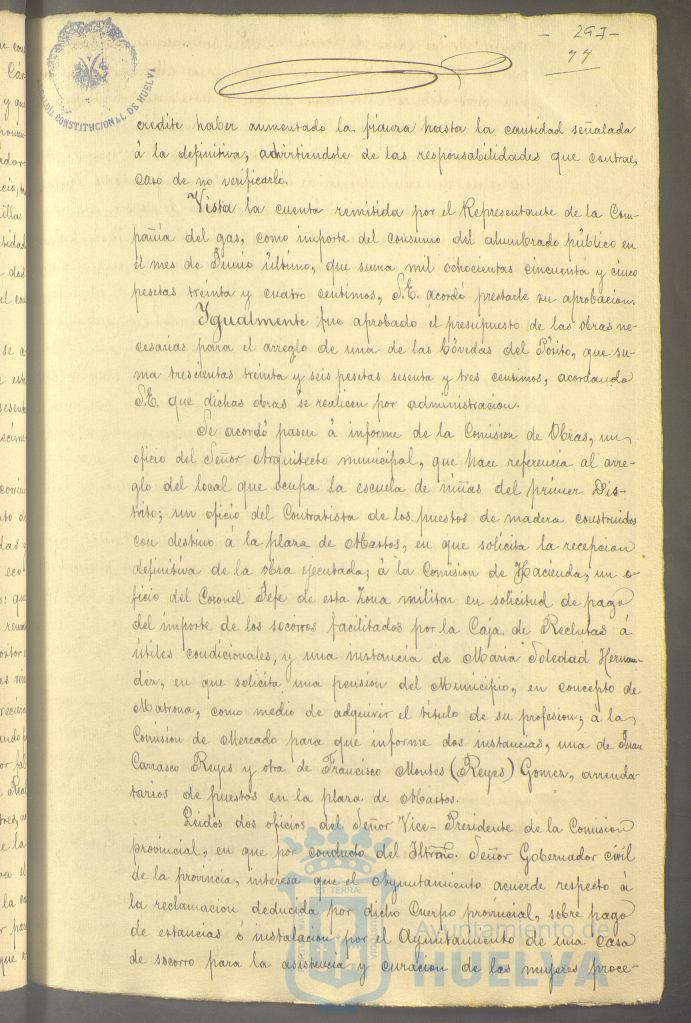 - 297-
44
ALCALDIA CONSTITUCIONAL DE HUELVA
credite haber aumentado la fianza hasta la cantidad señalada
á la definitiva, advirtiendole de las responsabilidades que contrae,
caso de no verificarlo.
Vista la cuenta remitida por el Representante de la Com-
pañia del gas, como importe del consumo del alumbrado público en
el mes de Junio último, que suma mil ochocientas cincuenta y cinco
pesetas treinta y cuatro centimos, S.E. acordó prestarle su aprobacion.
Igualmente fue aprobado el presupuesto de las obras ne-
cesarias para el arreglo de una de las bóvedas del Pósito, que su-
ma trescientas treinta y seis pesetas sesenta y tres centimos, acordando
S.E. que dichas obras se realicen por administracion.
Se acordó pasen á informe de la Comision de Obras, un
oficio del Señor Arquitecto municipal, que hace referencia al arre-
glo del local que ocupa la escuela de niñas del primer Dis-
trito; un oficio del Contratista de los puestos de madera construidos
con destino á la plaza de Abastos, en que solicita la recepcion
definitiva de la obra ejecutada; á la Comision de Hacienda, un o-
ficio del Coronel Jefe de esta Zona militar en solicitud de pago
del importe de los socorros facilitados por la Caja de Reclutas á
útiles condicionales, y una instancia de Maria Soledad Hernan-
dez, en que solicita una pension del Municipio, en concepto de
Matrona, como medio de adquirir el título de su profesion; á la
Comision de Mercado para que informe dos instancias, una de Juan
Carrasco Reyes y otra de Francisco Montes (Reyes) Gomez, arrenda-
tarios de puestos en la plaza de Abastos.
Leidos dos oficios del Señor Vice-Presidente de la Comision
provincial, en que por conducto del Iltmo. Señor Gobernador civil
de la provincia, interesa que el Ayuntamiento acuerde respecto á
la reclamacion deducida por dicho Cuerpo provincial, sobre pago
de estancias ó instalacion por el Ayuntamiento de una casa
de socorro para la asistencia y curacion de las mujeres proce-
Ayuntamiento de
HUELVA